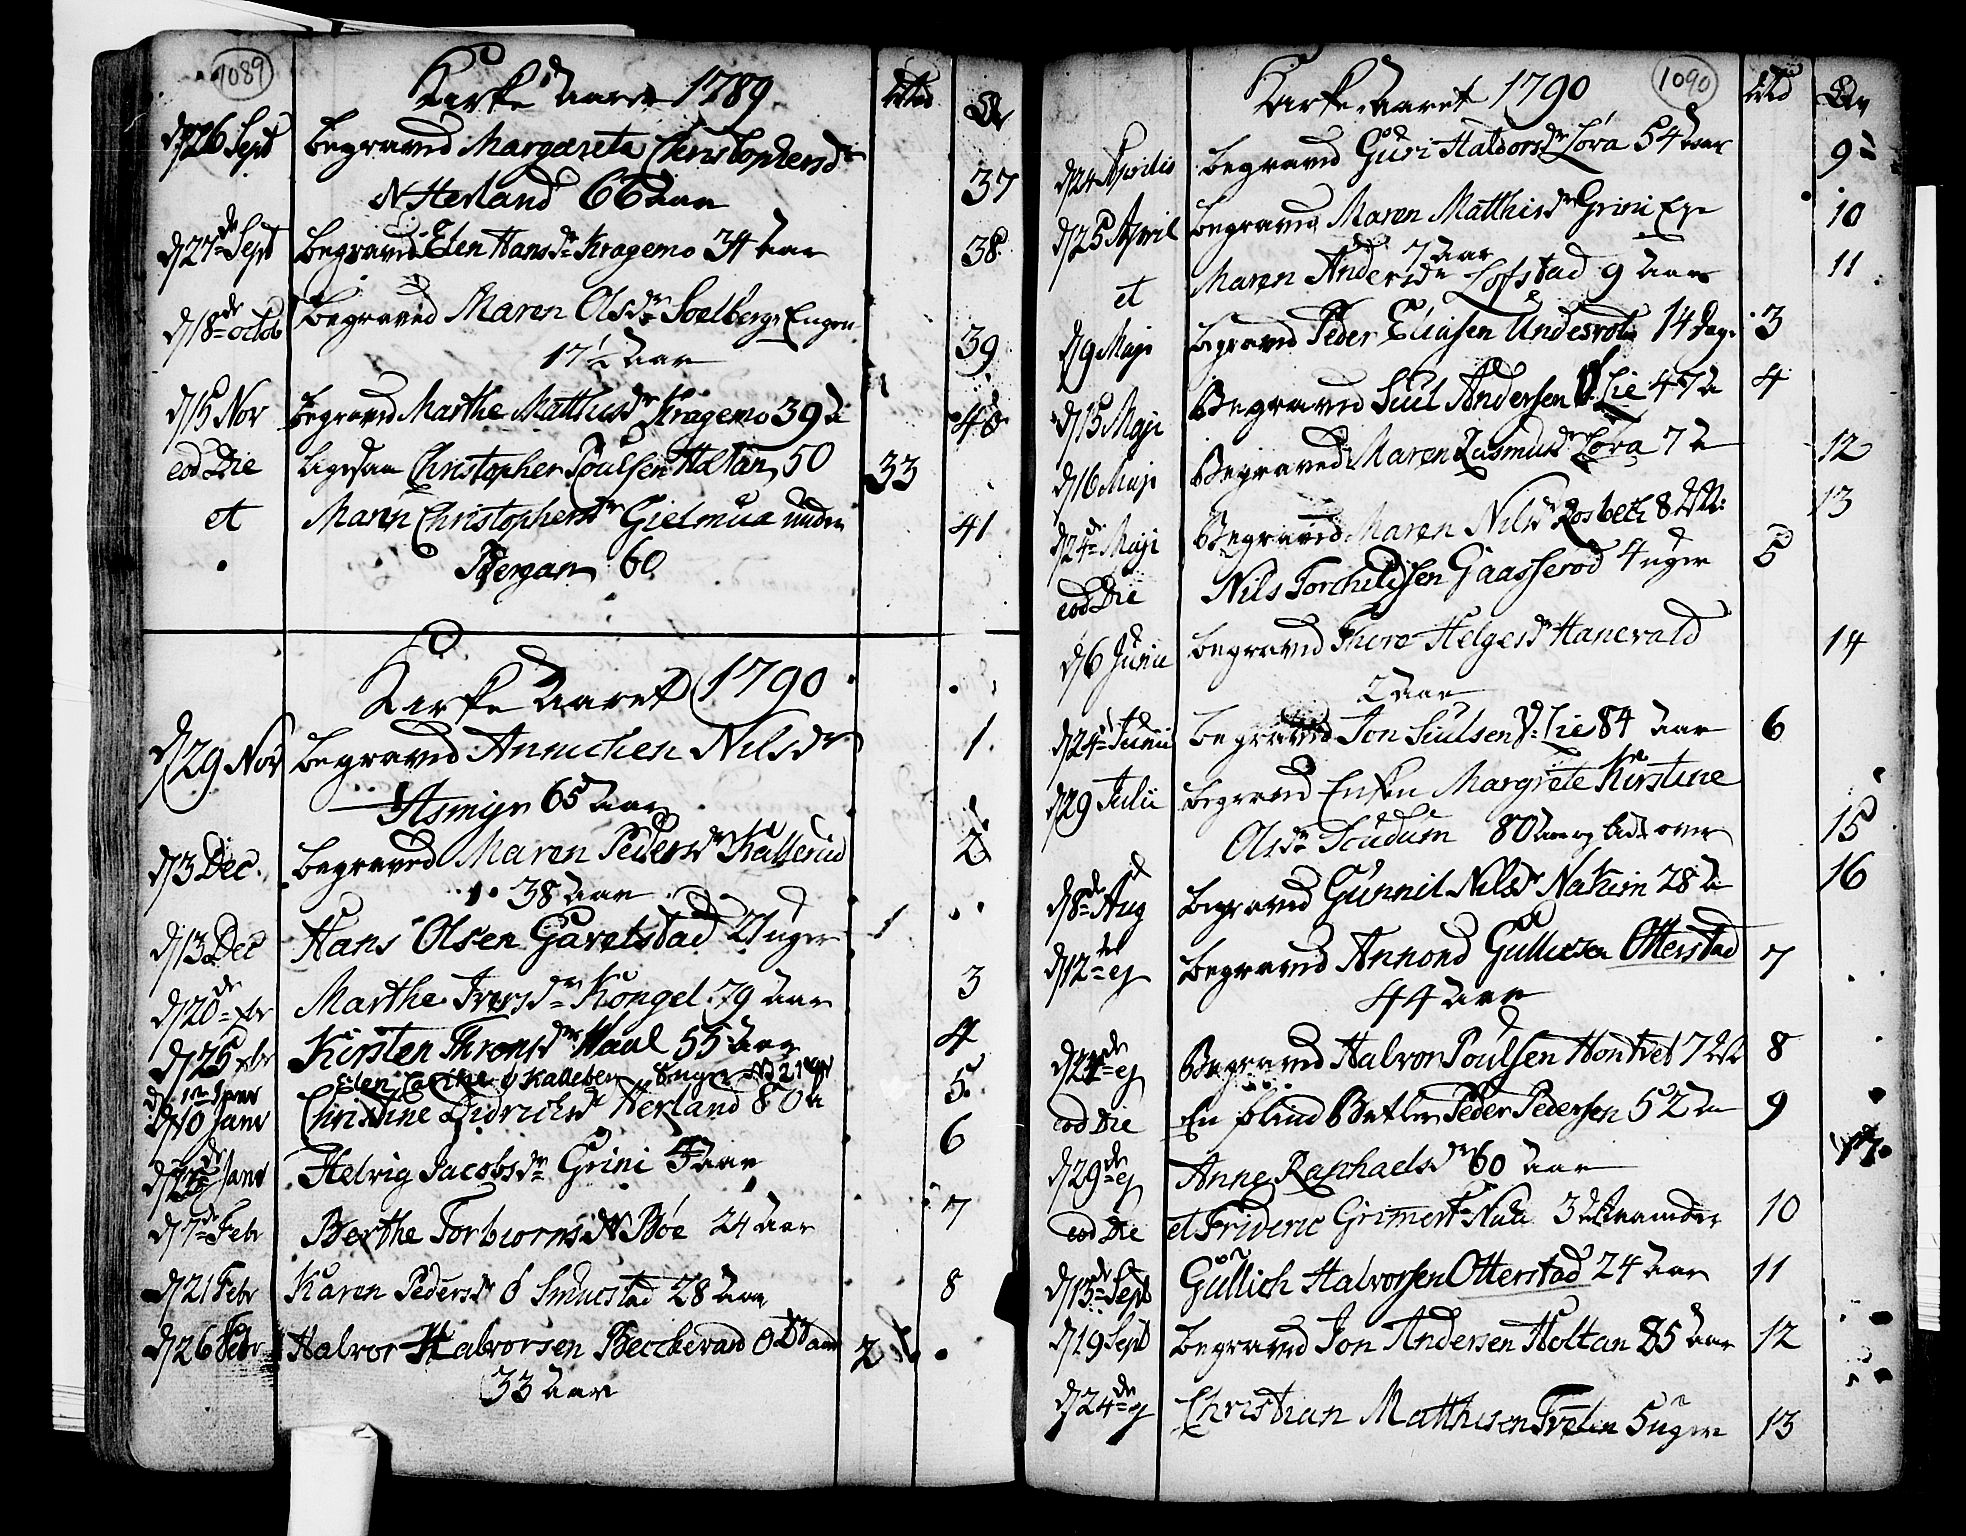 1089
Kirke Aaret 1789
d 26 Sept Begraved Margareta Christophersdr
N Herland 66 Aar 37
d 27de Sept Begraved Elen Hansdr Kragemo 34 Aar 38
d 18de octob Begraved Maren Olsdr Soelberg Engen
17½ Aar 39
d 15 Nov Begraved Marthe Matthisdr Kragemo 39 A 40
eod Die ligesaa Christopher Poulsen Holtan 50 33
et Maren Christophersdr Gielmua under 41
Bergan 60
Kirke Aaret 1790
d 29 Nov Begraved Annichen Nilsdr 1
Asmyr 65 Aar
d 3 Dec. Begraved Maren Pedersdr Kallerud 2
38 Aar
d 13 Dec Hans Olsen Garetstad 21 uger 1
d 20de xbr Marthe Iversdr Kongel 79 Aar 3
d 25 xbr Kirsten Thronsdr Haul 55 Aar 4
d 1 Janr Elen Cathe Kalleben 5
d 10 Janr Christine Didrichsdr Herland 80 A
Janr Helvig Jacobsdr Grini Aar 6
d 7de Febr Berthe Torbiornsdr N Bøe 24 Aar 7
d 21 Febr Karen Pedersdr Ø Smucstad 28 Aar 8
d 26 Febr Halvor Halvorsen Beckevard 2
33 Aar
1090
Kirke Aaret 1790
d 24 Aprilis Begraved Guri Haldorsdr Lora 54 Aar 9
d 25 April Begraved Maren Matthisdr Grini Eje 10
7 Aar
et Maren Andersdr Lofstad 9 Aar 11
d 9 Maji Begraved Peder Eliasen Undesrot 14 Dage 3
d 15 Maji Begraved Siul Andersen Lie 47 A 4
d 16 Maji Begraved Maren Rasmusdr Lora 7 A 12
d 24de Maji Begraved Maren Nilsdr Rosbech 8 13
eod Die Nils Torchildsen Gaasserod 4 uger 5
d 6 Junii Begraved Thore Helgesdr Hanevald 14
2 Aar
d 24de Junii Begraved Jon Siulsen Lie 84 Aar 6
d 29 Julii Begraved Enken Margrete Kirstine
Olsdr Scudum 80 Aar og lidt over 15
d 8de Aug Begraved Gunnil Nilsdr Nakim 28 A 16
d 12de ej Begraved Annond Gullicsen Otterstad 7
44 Aar
d 21de ej Begraved Halvor Poulsen Hontvet 7 8
eod Die En blind Betler Peder Pedersen 52 A 9
d 29de ej Anne Raphaelsdr 60 Aar 17
eod Die et Frideric Grimert 3 10
d 13de Sept Gullich Halvorsen Otterstad 24 Aar 11
d 19 Sept Begraved Jon Andersen Holtan 85 Aar 12
d 24de ej Christian Matthisen Tveten 5 uger 13